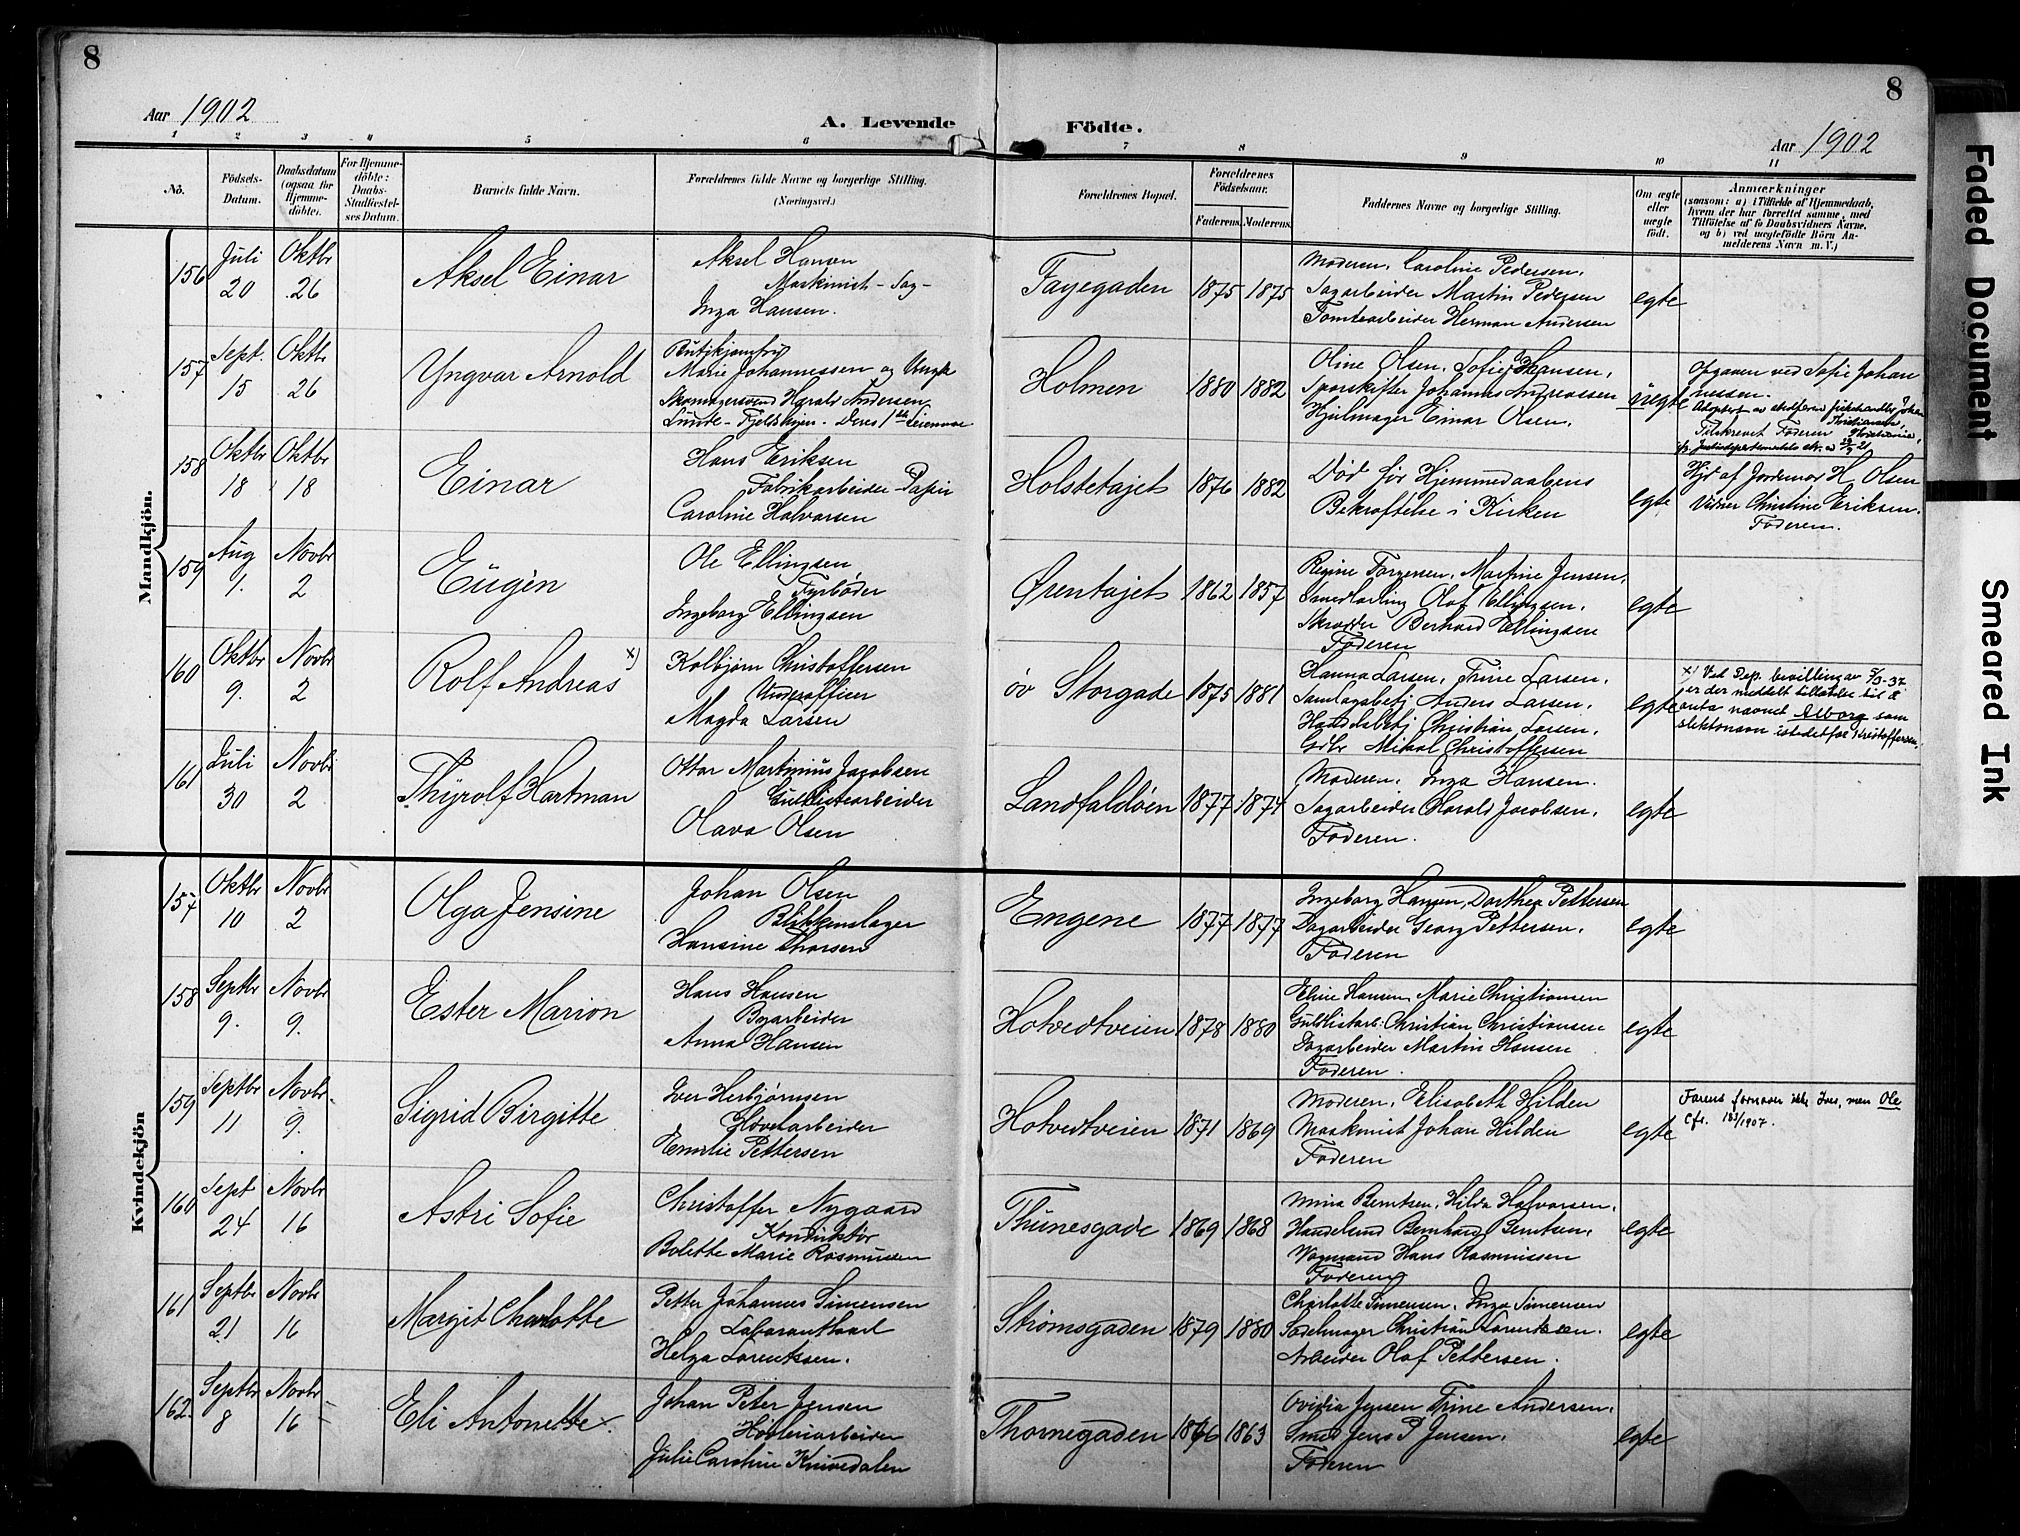 8
8
Aar 1902
A. Levende Födte.
Aar 1902
1 2 3 4 5 6 7 8 9 10 11
No.
Födsels-
Datum.
Daabsdatum
(ogsaa for
Hjemme-
döbte).
For Hjemme-
döbte:
Daabs-
Stadfæstel-
ses Datum.
Barnets fulde Navn.
Forældrenes fulde Navne og borgerlige Stilling.
(Næringsvei.)
Forældrenes Bopæl.
Forældrenes
Födselsaar.
Faderens. Moderens.
Faddernes Navne og borgerlige Stilling.
Om ægte
eller
uægte
født.
Anmærkninger
(saasom: a) i Tilfælde af Hjemmedaab,
hvem der har forrettet samme, med
Tilföielse af to Daabsvidners Navne,
og b) ved uægtefödte Börn An-
melderens Navn m. V.)
Mandkjön.
156
Juli
20
Oktbr
26
Aksel Einar
Aksel Hansen
Maskinist - Sag -
Inga Hansen.
Fayegaden
1875 1875
Moderen, Caroline Pedersen,
Sagarbeider Martin Pedersen
Tomtearbeider Herman Andersen
egte
157
Sept.
15
Oktbr
26
Yngvar Arnold
Butikjomfru
Marie Johannessen og Ungk
Skomagersvend Harald Andersen
Lunde - Fjeldsbyen. Deres 1ste Leiermaal
Holmen
1880 1882
Oline Olsen, Sofie Hansen,
Sporskifter Johannes Andreassen
Hjulmager Einar Olsen.
uegte
Opgaven ved Sofie Johan
nessen.
158
Oktbr
18
Oktbr
18
Einar
Hans Eriksen
Fabrikarbeider - Papir
Caroline Halvorsen
Holstetajet
1876 1882
Død før Hjemmedaabens
Bekræftelse i Kirken
egte
Hjd af Jordemor H. Olsen
Vidner Christine Eriksen.
Faderen.
159
Aug
1.
Novbr
2
Eugèn
Ole Ellingsen,
Fyrbøder
Ingeborg Ellingsen
Ørentajet
1862 1857
Regine Torgersen, Martine Jensen,
Smedlærling Olaf Ellingsen,
Skrædder Berhard Ellingsen
Faderen
egte
160
Oktbr
9.
Novbr
2
Rolf Andreas x)
Kolbjørn Christoffersen
Underofficer
Magda Larsen
øv Storgade
1875 1881
Hanna Larsen, Trine Larsen,
Samlagsbetj Anders Larsen,
Handelsbetj Christian Larsen,
Gdbr Mikal Christoffersen
egte
x) Ved Dep. bevilling av 5/3-37
er der meddelt tillatelse til å
anta navnet Alborg som
slektsnavn istedetfor Kristoffersen.
161
Juli
30
Novbr
2
Thyrolf Hartman
Ottar Martinius Jacobsen
Guldlistearbeider
Olava Olsen
Landfaldøen
1877 1874
Moderen, Inga Hansen.
Sagarbeider Harald Jacobsen,
Faderen.
egte
Kvindekjön
157
Oktbr
10
Novbr
2
Olga Jensine
Johan Olsen
Blikkenslager
Hansine Thorsen
Engene
1877 1877
Ingeborg Hansen, Dorthea Pettersen
Dagarbeider Georg Pettersen.
Faderen
egte
158
Septbr
9.
Novbr
9.
Ester Marion
Hans Hansen
Byarbeider
Anna Hansen
Hotvedtveien
1878 1880
Eline Hansen, Marie Christiansen
Guldlistarb: Christian Christiansen
Dagarbeider Martin Hansen
Faderen.
egte
159
Septbr
11
Novbr
9.
Sigrid Birgitte
Iver Herbjørnsen
Høvelarbeider
Emilie Pettersen
Hotvedtveien
1871 1869
Moderen, Elisabeth Hilden
Maskinist Johan Hilden
Faderen
egte
Farens fornavn ikke Iver, men Ole
Cfr. 183/1907.
160
Sept
24
Novbr
16
Astri Sofie
Christoffer Nygaard
Konduktør
Bolette Marie Rasmussen
Thunesgade
1869 1868
Mina Berntsen, Hilda Halvorsen,
Handelsmd Bernhard Berntsen,
Vognmand Hans Rasmussen
Faderen
egte
161
Septbr
21
Novbr
16
Margit Charlotte
Petter Johannes Simensen
Helga Lorentssen.
Strømsgaden
1879 1880
Charlotte Simensen, Inga Simensen
Sadelmager Christian Lorentssen.
Arbeider Olaf Pettersen.
egte
162
Septbr
8
Novbr
16
Eli Antonette
Johan Peter Jensen
Høvleriarbeider
Julie Caroline Knivedalen
Thornegaden
1866 1863
Ovidia Jensen Trine Andersen,
Smed Jens P Jensen.
Faderen
egte
Faded Document
Smeared Ink